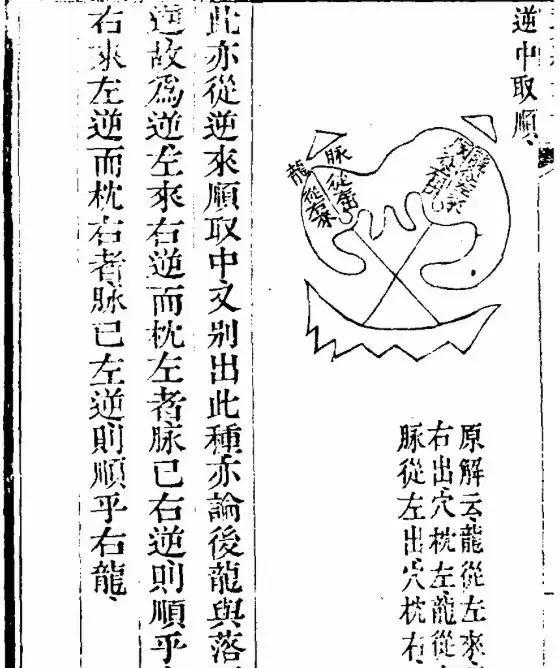 逆中取順
龍從右來
脉從左出
原解云龍從左來
右出穴枕左龍從
脉從左出穴枕右
此亦從逆來順取中又別出此種亦論後龍與落
逆故為逆左來右逆而枕左者脉已右逆則順乎
右來左逆而枕右者脉已左逆則順乎右龍